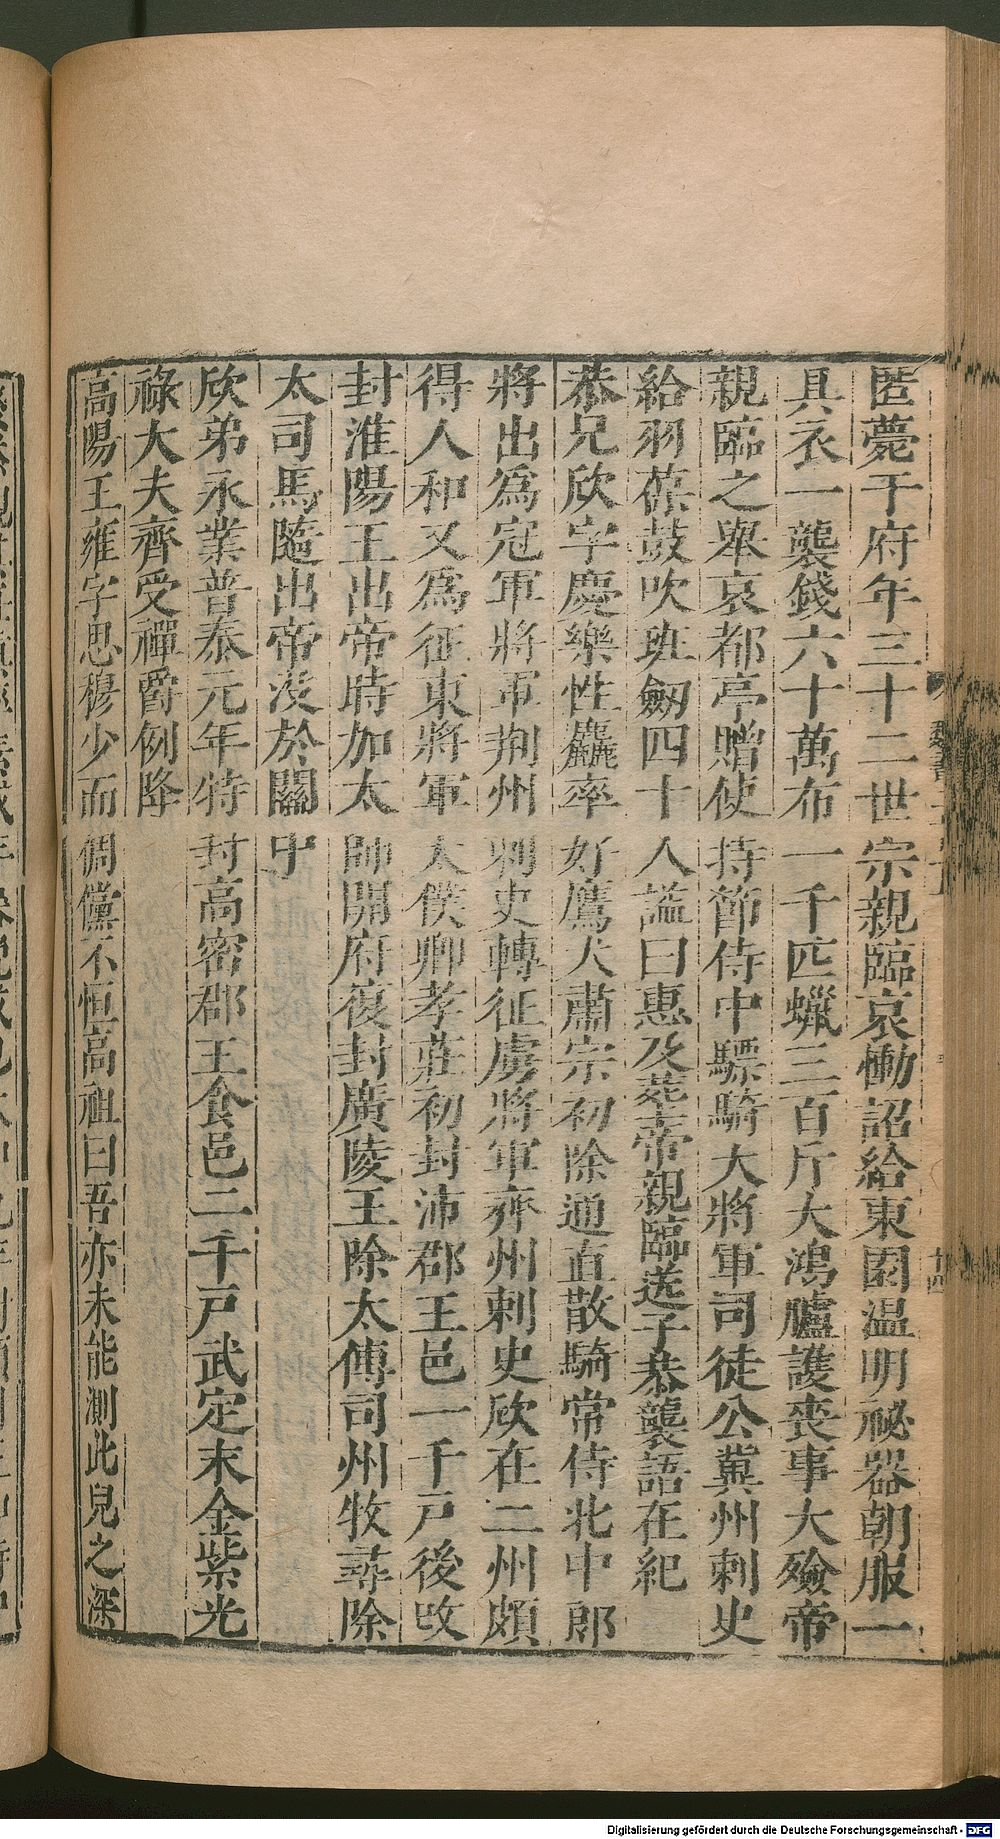 匿薨于府年三十二世宗親臨哀慟詔給東園温明祕器朝服一
具衣一襲錢六十萬布一千匹蠟三百斤大鴻臚護喪事大殮帝
親臨之舉哀都亭贈使持節侍中驃騎大將軍司徒公冀州刺史
給羽葆鼓吹班劒四十人諡曰惠及葬帝親臨送子恭襲語在紀
恭兄欣字慶樂性麤率好鷹犬肅宗初除通直散騎常侍北中郎
將出爲冠軍將軍荆州刺史轉征虜將軍齊州刺史欣在二州頗
得人和又爲征東將軍太僕卿孝莊初封沛郡王邑一千戸後攺
封淮陽王出帝時加太師開府復封廣陵王除太傅司州牧尋除
太司馬隨出帝没於關中
欣弟永業普泰元年特封高密郡王食邑二千戸武定末金紫光
祿大夫齊受禪爵例降
高陽王雍字思穆少而倜儻不恒高祖曰吾亦未能測此兒之深
十四
Digitalisierung gefördert durch die Deutsche Forschungsgemeinschaft - DFG